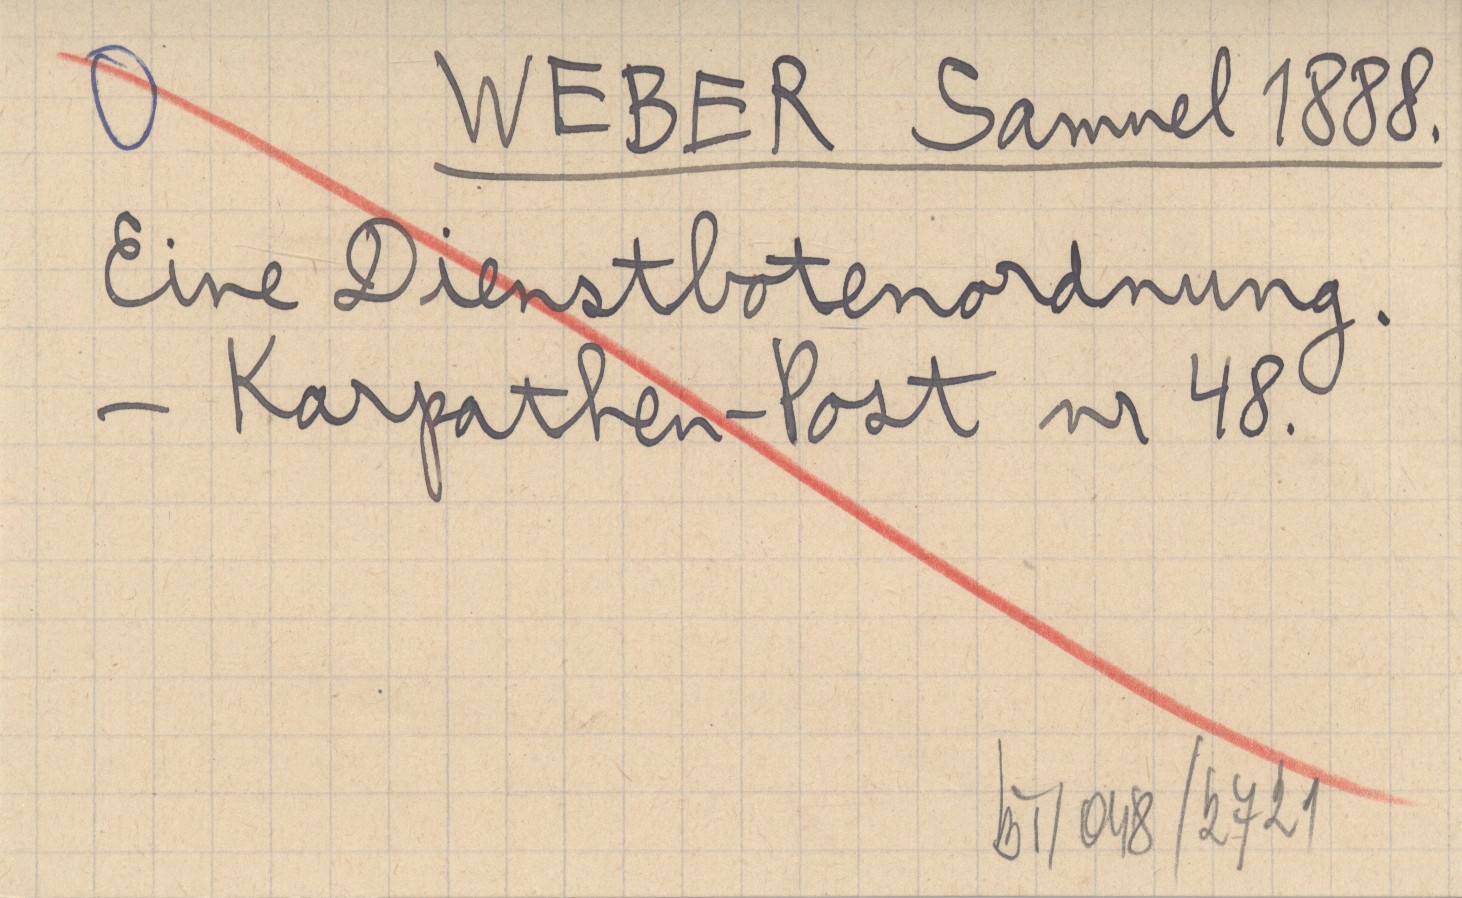 WEBER Samuel 1888.
Eine Dienstbotenordnung.
- Karpathen-Post nr 48.